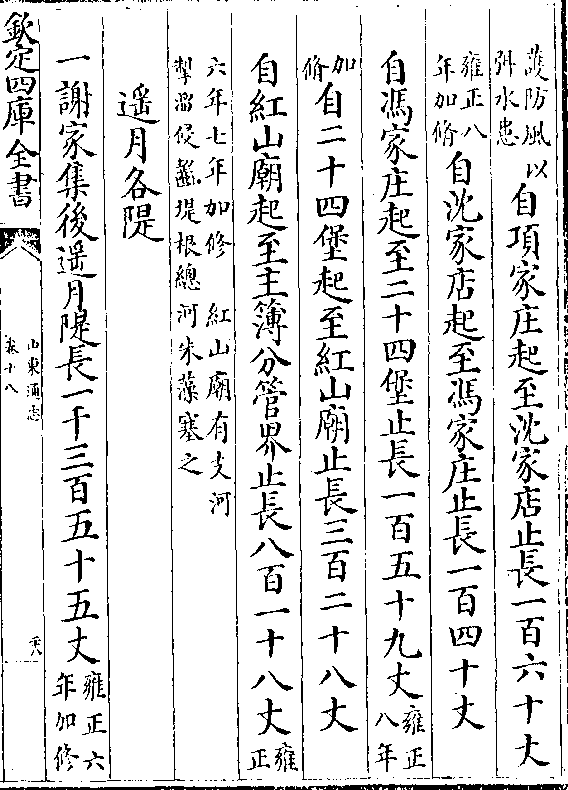 護防風以
弭水患
自項家庄起至沈家店止長一百六十丈
雍正八
年加脩
自沈家店起至馮家庄止長一百四十丈
自馮家庄起至二十四堡止長一百五十九丈
雍正
八年
加
脩
自二十四堡起至紅山廟止長三百二十八丈
自紅山廟起至主簿分管界止長八百一十八丈
雍
正
六年七年加修 紅山廟有支河
掣溜侵齧堤根總河朱藻塞之
遥月各隄
一謝家集後遥月隄長一千三百五十五丈
雍正六
年加修
欽定四庫全書
山東通志
卷十八